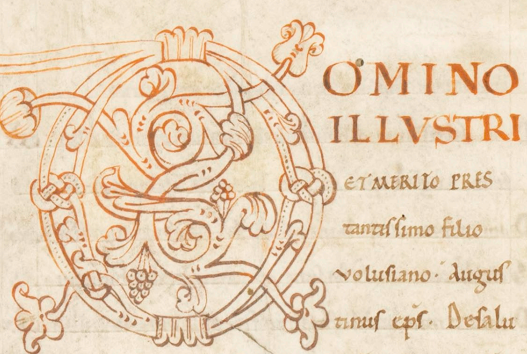 DOMINO
ILLVSTRI
ET MERITO PRES
tantissimo filio
volusiano· Augus
tinus eps̅· Desalu